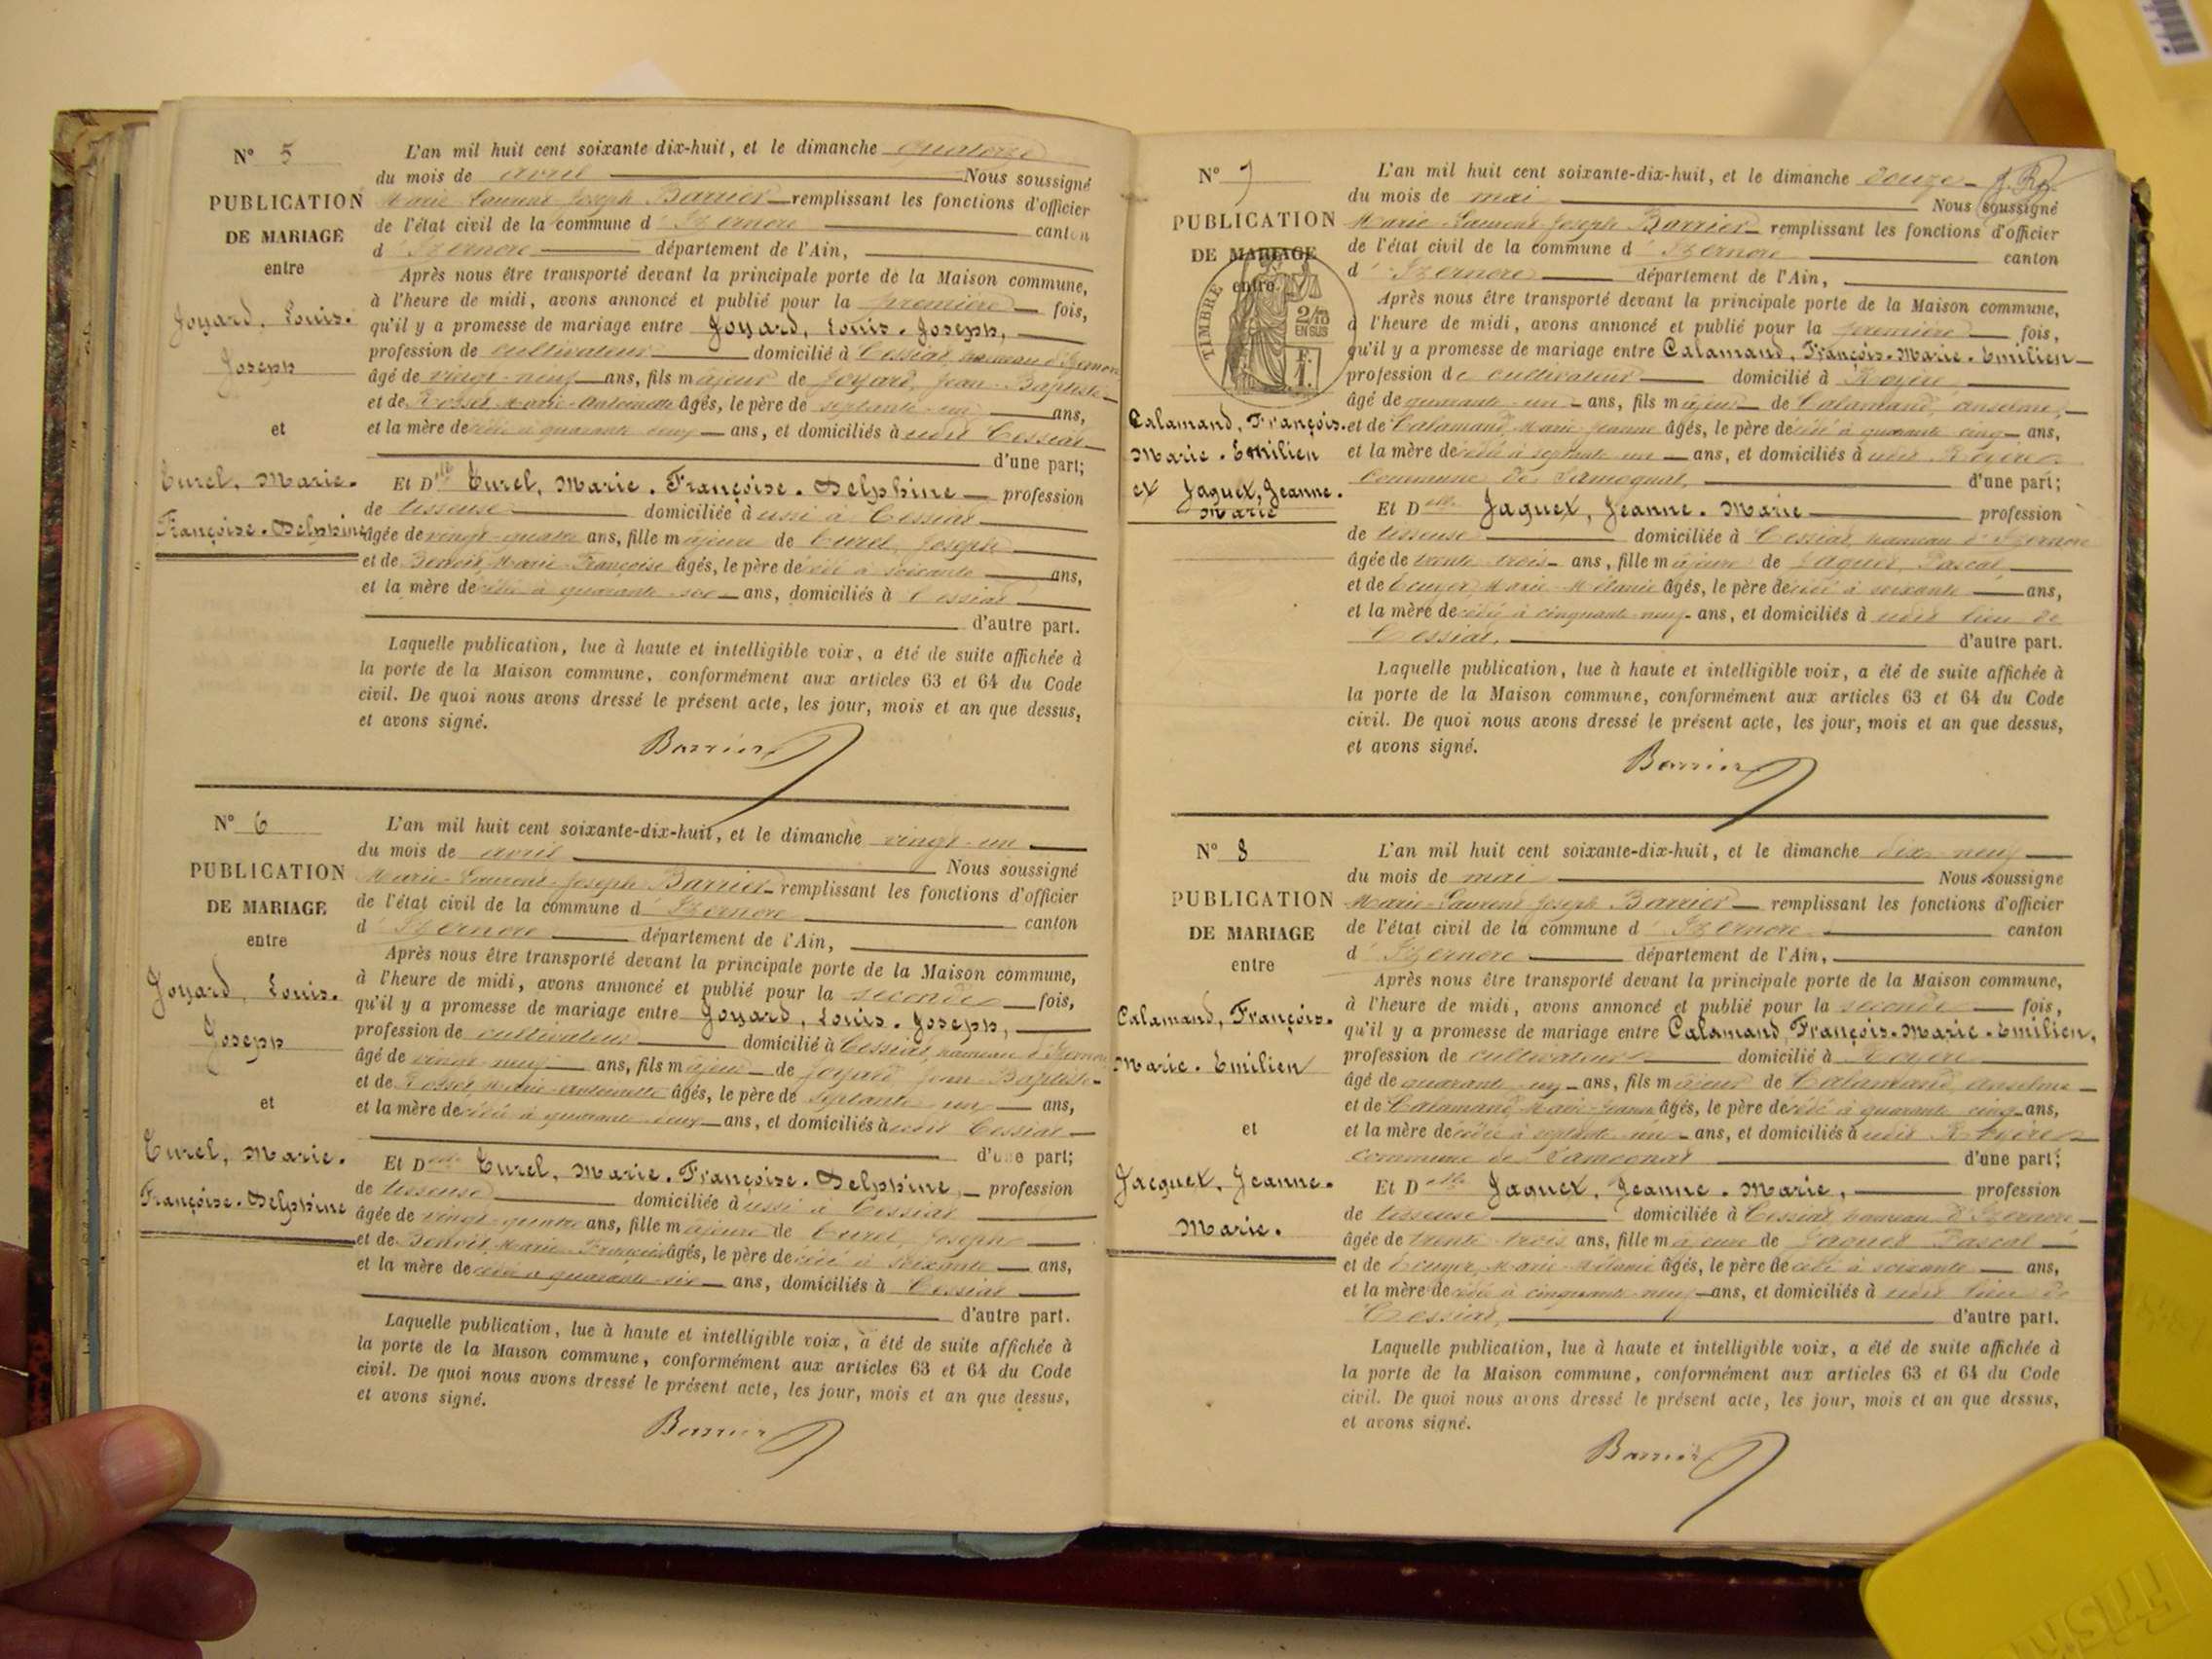 N° 5
PUBLICATION
DE MARIAGE
entre
Joyard, Louis.
Joseph
et
Curel, Marie.
Françoise. Delphine
L'an mil huit cent soixante-dix-huit, et le dimanche quatorze
du mois de avril Nous soussigné
Marie Laurent Joseph Barrier remplissant les fonctions d'officier
de l'état civil de la commune d'Izernore canton
d'Izernore département de l'Ain,
Après nous être transporté devant la principale porte de la Maison commune,
à l'heure de midi, avons annoncé et publié pour la première fois,
qu'il y a promesse de mariage entre Joyard, Louis. Joseph,
profession de cultivateur domicilié à Cessiat, hameau d'Izernore
âgé de vingt-neuf ans, fils majeur de Joyard, Jean-Baptiste
et de Rosset Marie-Antoinette âgés, le père de septante-un ans,
et la mère décédée à quarante deux ans, et domiciliés à audit Cessiat
d'une part;
Et Dlle Curel, Marie. Françoise. Delphine profession
de tisseuse domiciliée à aussi à Cessiat
âgée de vingt-quatre ans, fille majeure de Curel, Joseph
et de Benoit, Marie-Françoise âgés, le père décédé à soixante ans,
et la mère décédée à quarante-six ans, domiciliés à Cessiat
d'autre part.
Laquelle publication, lue à haute et intelligible voix, a été de suite affichée à
la porte de la Maison commune, conformément aux articles 63 et 64 du Code
civil. De quoi nous avons dressé le présent acte, les jour, mois et an que dessus,
et avons signé.
Barrier
N° 6
PUBLICATION
DE MARIAGE
entre
Joyard, Louis.
Joseph
et
Curel, Marie.
Françoise. Delphine
L'an mil huit cent soixante-dix-huit, et le dimanche vingt-un
du mois de avril Nous soussigné
Marie-Laurent-Joseph Barrier remplissant les fonctions d'officier
de l'état civil de la commune d'Izernore
d'Izernore département de l'Ain, canton
Après nous être transporté devant la principale porte de la Maison commune,
à l'heure de midi, avons annoncé et publié pour la seconde fois,
qu'il y a promesse de mariage entre Joyard, Louis. Joseph,
profession de cultivateur domicilié à Cessiat, hameau d'Izernore
âgé de vingt-neuf ans, fils majeur de Joyard Jean-Baptiste
et de Rosset Marie-Antoinette âgés, le père de septante-un ans,
et la mère décédée à quarante deux ans, et domiciliés à audit Cessiat
d'une part;
Et Delle Curel, Marie. Françoise. Delphine, profession
de tisseuse domiciliée à aussi à Cessiat
âgée de vingt-quatre ans, fille majeure de Curel, Joseph
et de Benoit, Marie-Françoise âgés, le père décédé à soixante ans,
et la mère décédée à quarante-six ans, domiciliés à Cessiat
d'autre part.
Laquelle publication, lue à haute et intelligible voix, a été de suite affichée à
la porte de la Maison commune, conformément aux articles 63 et 64 du Code
civil. De quoi nous avons dressé le présent acte, les jour, mois et an que dessus,
et avons signé.
Barrier
N° 7
PUBLICATION
DE MARIAGE
entre
TIMBRE
2/10
EN SUS
1 F.
Calamand, François.
Marie. Emilien
et Jaquet, Jeanne.
Marie
L'an mil huit cent soixante-dix-huit, et le dimanche douze
du mois de mai Nous soussigné
Marie-Laurent Joseph Barrier remplissant les fonctions d'officier
de l'état civil de la commune d'Izernore canton
d'Izernore département de l'Ain,
Après nous être transporté devant la principale porte de la Maison commune,
à l'heure de midi, avons annoncé et publié pour la première fois,
qu'il y a promesse de mariage entre Calamand, François. Marie. Emilien
profession de cultivateur domicilié à Royère
âgé de quarante-un ans, fils majeur de Calamand, Anselme,
et de Calamand, Marie Jeanne âgés, le père décédé à quarante cinq ans,
et la mère décédée à septante un ans, et domiciliés à audit Royère
commune de Samognat, d'une part;
Et Delle Jaquet, Jeanne. Marie profession
de tisseuse domiciliée à Cessiat, hameau d'Izernore
âgée de trente trois ans, fille majeure de Jaquet, Pascal,
et de Ecuyer, Marie-Mélanie âgés, le père décédé à soixante ans,
et la mère décédée à cinquante-neuf ans, et domiciliés à audit lieu de
Cessiat, d'autre part.
Laquelle publication, lue à haute et intelligible voix, a été de suite affichée à
la porte de la Maison commune, conformément aux articles 63 et 64 du Code
civil. De quoi nous avons dressé le présent acte, les jour, mois et an que dessus,
et avons signé.
Barrier
N° 8
PUBLICATION
DE MARIAGE
entre
Calamand, François.
Marie. Emilien
et
Jacquet, Jeanne.
Marie.
L'an mil huit cent soixante-dix-huit, et le dimanche dix-neuf
du mois de mai Nous soussigné
Marie-Laurent Joseph Barrier remplissant les fonctions d'officier
de l'état civil de la commune d'Izernore canton
d'Izernore département de l'Ain,
Après nous être transporté devant la principale porte de la Maison commune,
à l'heure de midi, avons annoncé et publié pour la seconde fois,
qu'il y a promesse de mariage entre Calamand, François. Marie. Emilien,
profession de cultivateur domicilié à Royère
âgé de quarante-un ans, fils majeur de Calamand, Anselme
et de Calamand, Marie-Jeanne âgés, le père décédé à quarante cinq ans,
et la mère décédée à septante-un ans, et domiciliés à audit Royère
commune de Samognat d'une part;
Et Delle Jaquet, Jeanne. Marie, profession
de tisseuse domiciliée à Cessiat, hameau d'Izernore
âgée de trente-trois ans, fille majeure de Jaquet Pascal
et de Ecuyer, Marie-Mélanie âgés, le père décédé à soixante ans,
et la mère décédée à cinquante-neuf ans, et domiciliés à audit lieu de
Cessiat, d'autre part.
Laquelle publication, lue à haute et intelligible voix, a été de suite affichée à
la porte de la Maison commune, conformément aux articles 63 et 64 du Code
civil. De quoi nous avons dressé le présent acte, les jour, mois et an que dessus,
et avons signé.
Barrier